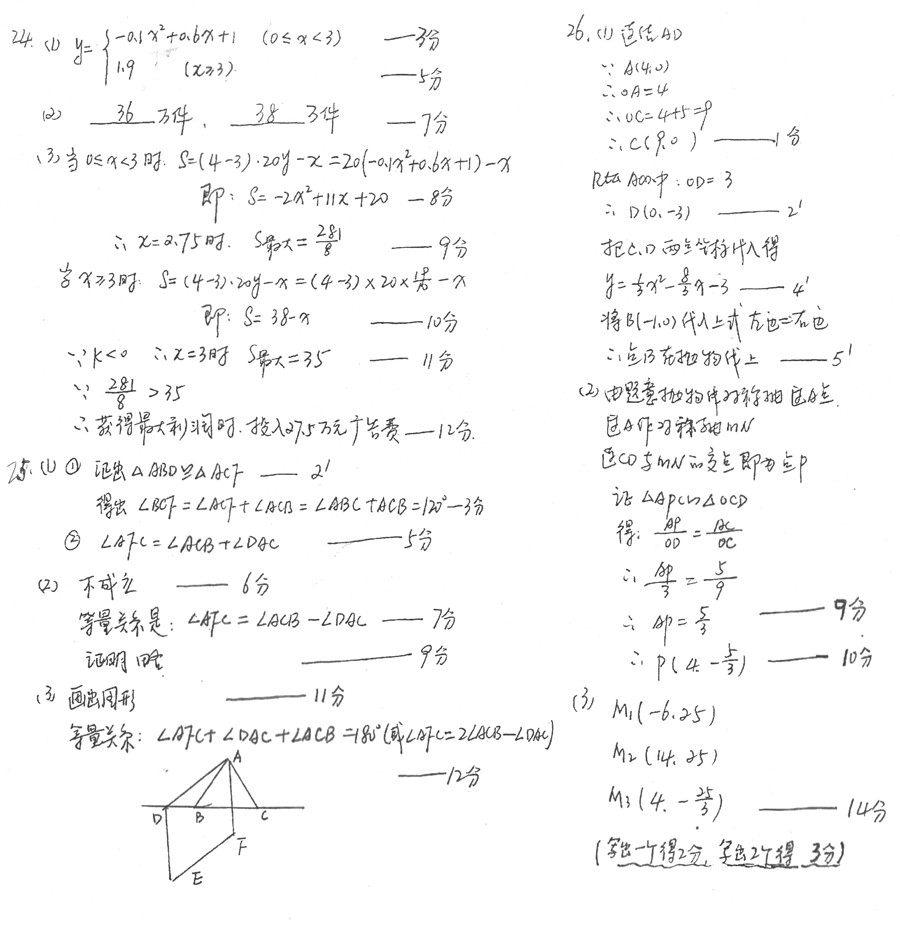 24. (1) y={ -0.1x²+0.6x+1 (0≤x<3) ——3分
1.9 (x≥3) ——5分
(2) 36 万件、 38 万件 ——7分
(3) 当0≤x<3时. S=(4-3)·20y-x=20(-0.1x²+0.6x+1)-x
即: S=-2x²+11x+20 —8分
∴ x=2.75时. S最大=281/8 ——9分
当x≥3时. S=(4-3)·20y-x=(4-3)×20×-x
即: S=38-x ——10分
∵K<0 ∴x=3时 S最大=35 ——11分
∵ 281/8 >35
∴获得最大利润时. 投入27.5万元广告费——12分.
25. (1) ① 证出△ABD≌△ACF —— 2'
得出 ∠BCF=∠ACF+∠ACB=∠ABC+ACB=120°—3分
② ∠AFC=∠ACB+∠DAC ——5分
(2) 不成立 ——6分
等量关系是: ∠AFC=∠ACB-∠DAC ——7分
证明略 ——9分
(3) 画出图形 ——11分
等量关系: ∠AFC+∠DAC+∠ACB=180°(或∠AFC=2∠ACB-∠DAC)
——12分
A
D B C
F
E
26. (1) 连结AD
∵ A(4.0)
∴OA=4
∴OC=4+5=9
∴C(9.0) ——1分
Rt△AOD中: OD=3
∴ D(0.-3) ——2'
把C.D两点坐标代入得
y=1/3x²-8/3x-3 ——4'
将B(-1.0)代入上式 左边=右边
∴点B在抛物线上 ——5'
(2) 由题意抛物线对称轴过A点.
过A作对称轴MN
连CD与MN的交点即为点P
证 △APC∽△OCD
得: AP/OD=AC/OC
∴ AP/3=5/9
∴ AP=5/3 ——9分
∴ P(4.-5/3) ——10分
(3) M₁(-6.25)
M₂(14.25)
M₃(4.-25/3) ——14分
(写出一个得2分, 写出2个得 3分)